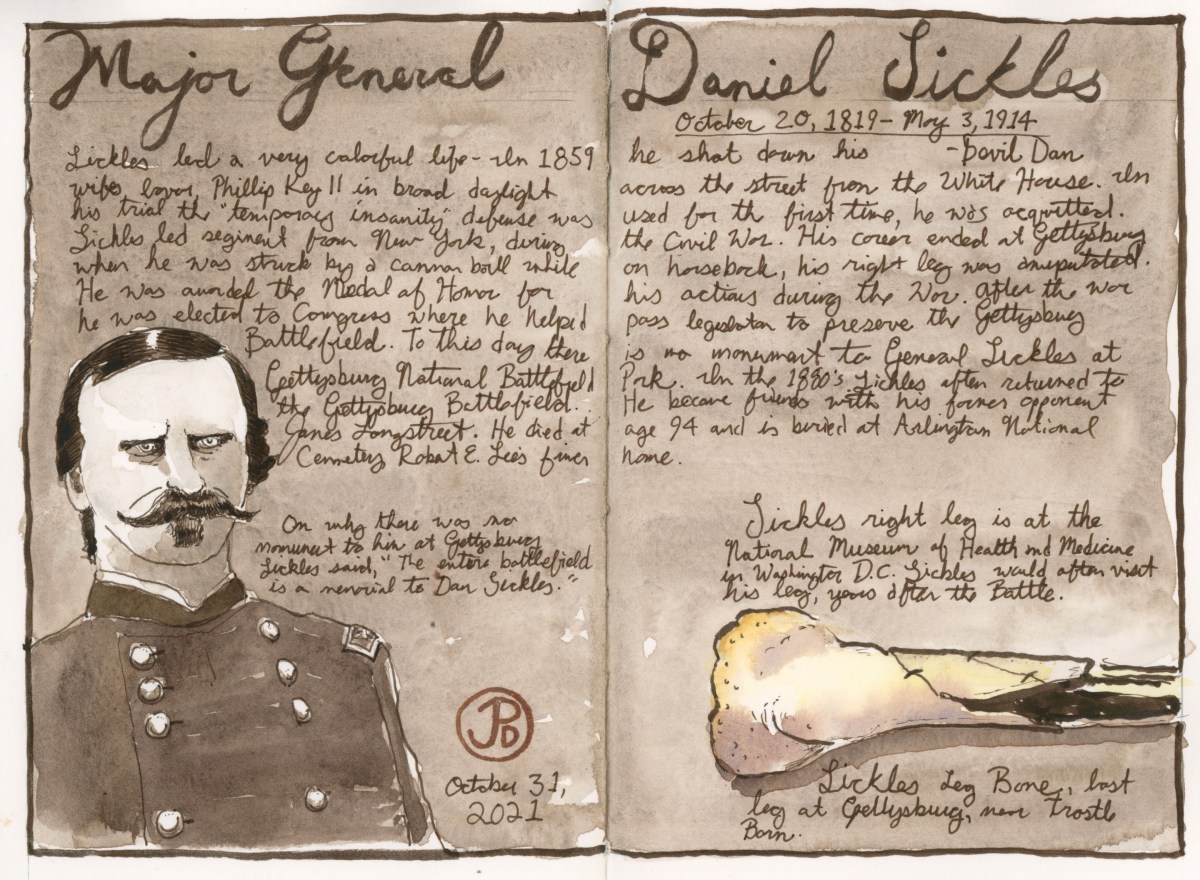 Major General Daniel Sickles
October 20, 1819- May 3, 1914
Sickles led a very colorful life - In 1859 he shot down his
-Devil Dan
wifes lover, Phillip Key II in broad daylight across the street from the White House. In
his trial the "temporary insanity" defense was used for th first time, he was acquitted.
Sickles led segiment from New York, during the Civil War. His career ended at Gettysburg
when he was struck by a cannon ball while on horseback, his right leg was amputated.
He was awarded the Medal of Honor for his actions during the War. After the war
he was elected to Congress where he helped pass legislation to preserve the Gettysburg
Battlefield. To this day there is no monument to General Sickles at
Gettysburg National Battlefield Park. In the 1880's Sickles often returned to
the Gettysburg Battlefield. He became friends with his former opponent
James Longstreet. He died at age 94 and is buried at Arlington National
Cemetery, Robert E. Lee's former home.
On why there was no
monument to him at Gettysburg
Sickles said, "The entire battlefield
is a memorial to Dan Sickles."
JPD
October 31,
2021
Sickles right leg is at the
National Museum of Health and Medicine
in Washington D.C. Sickles would often visit
his leg, years after the Battle.
Sickles Leg Bone, lost
leg at Gettysburg, near Trostle
Barn.